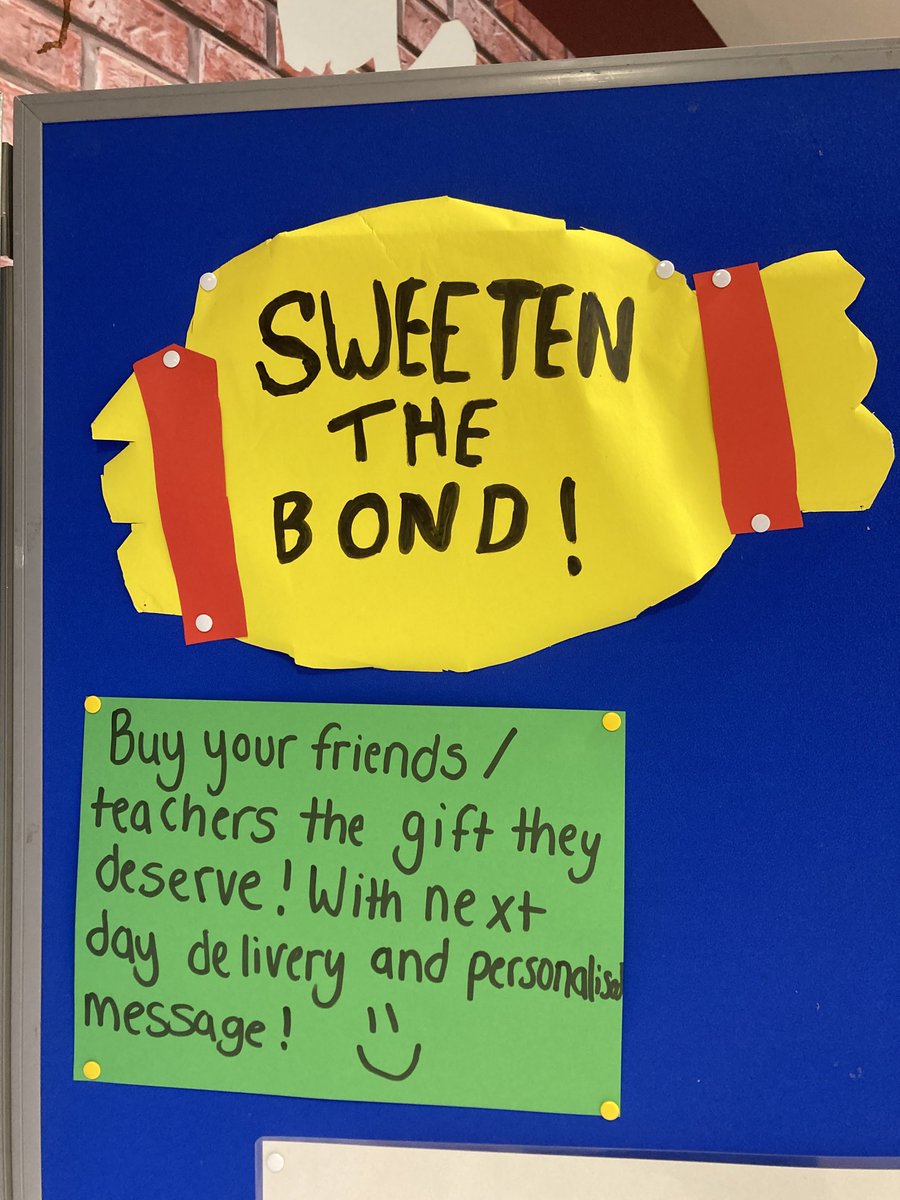 SWEETEN
THE
BOND!
Buy your friends /
teachers the gift they
deserve! With next
day delivery and personalised
message!